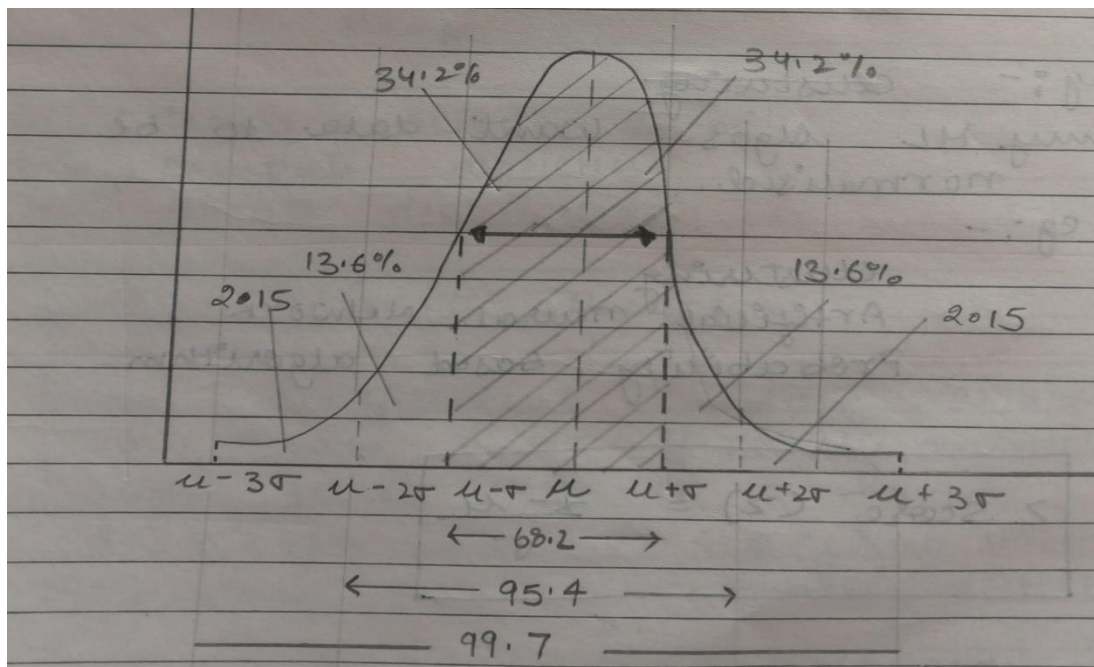 34.2%
34.2%
13.6%
13.6%
2.15
2.15
μ-3σ μ-2σ μ-σ μ μ+σ μ+2σ μ+3σ
68.2
95.4
99.7